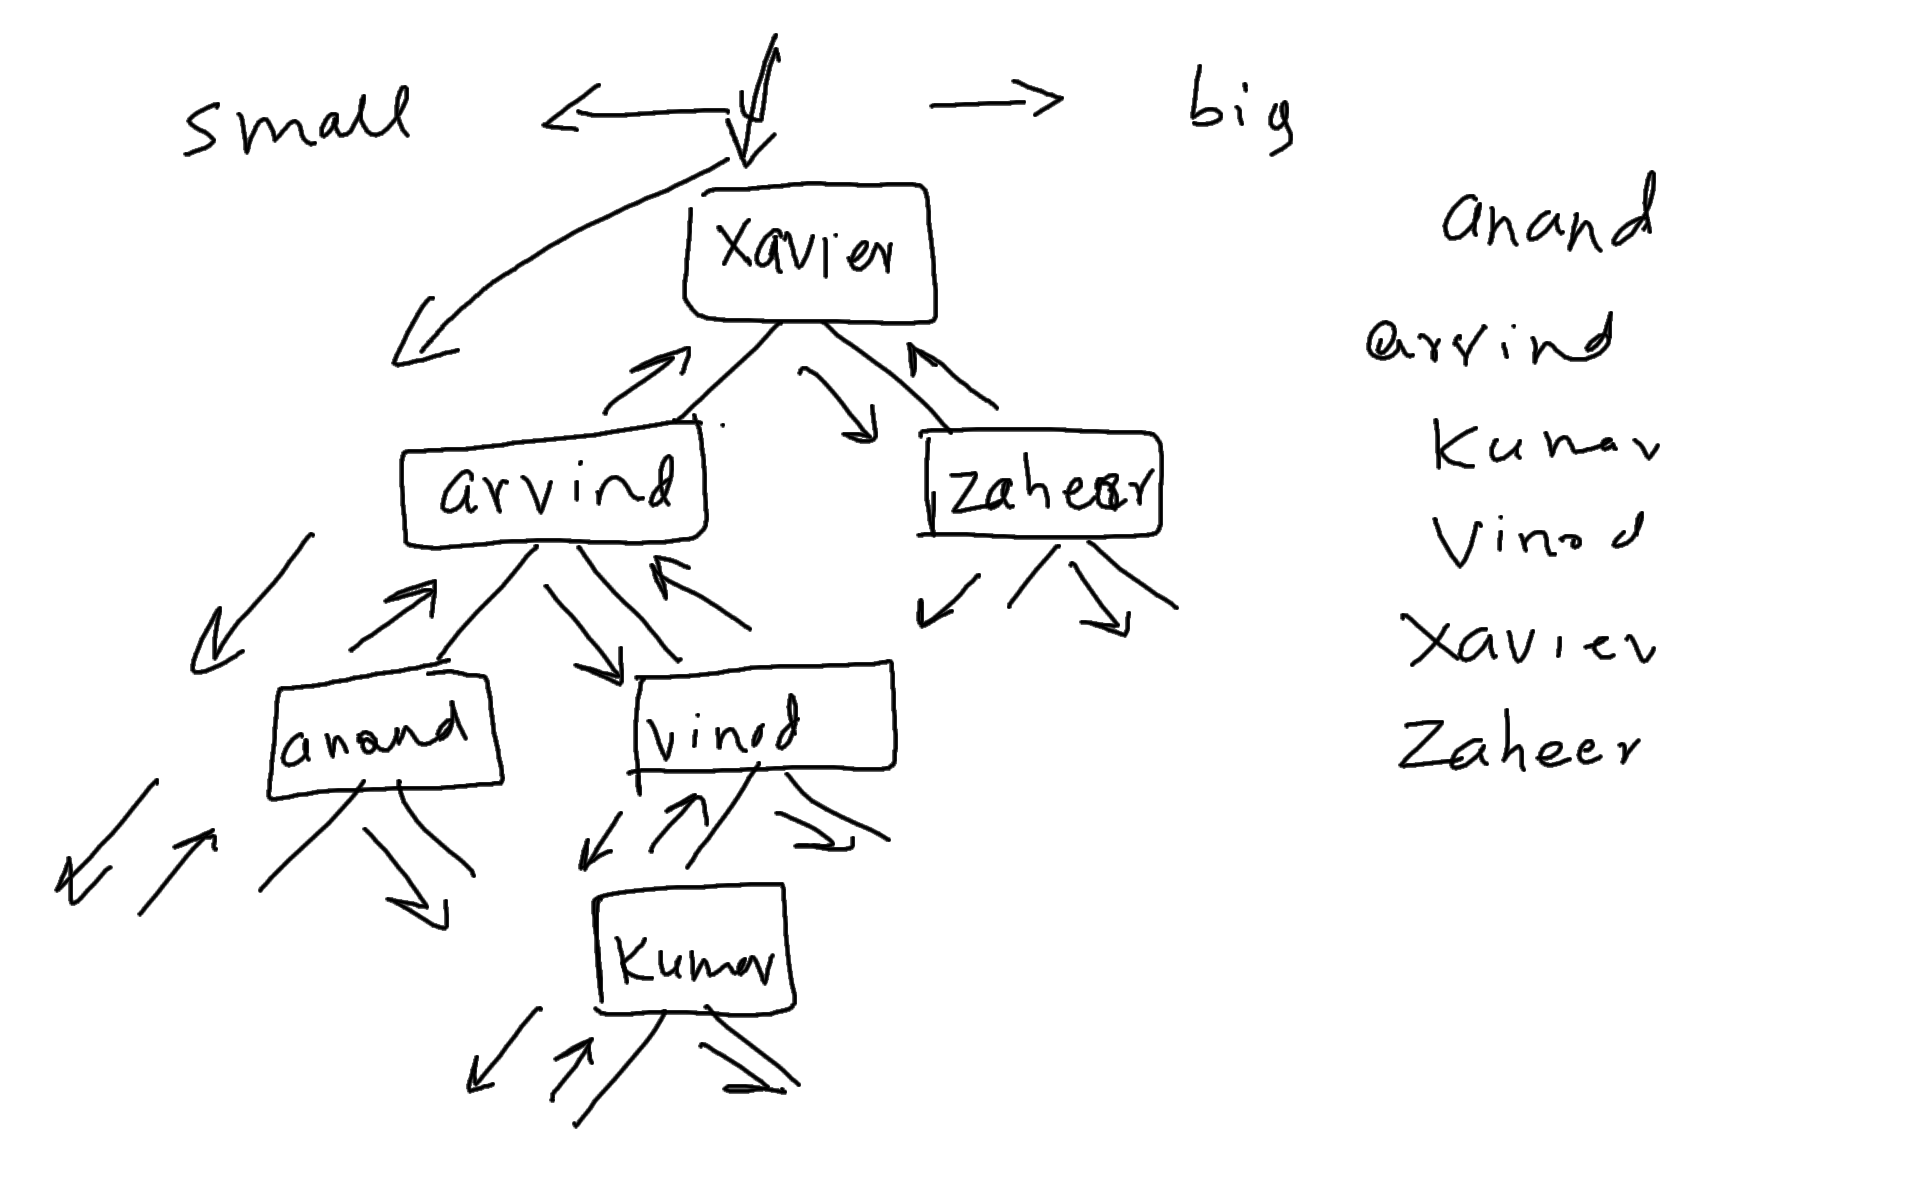 small
big
xavier
arvind
zaheer
anand
vinod
Kumar
anand
arvind
Kumar
Vinod
Xavier
Zaheer